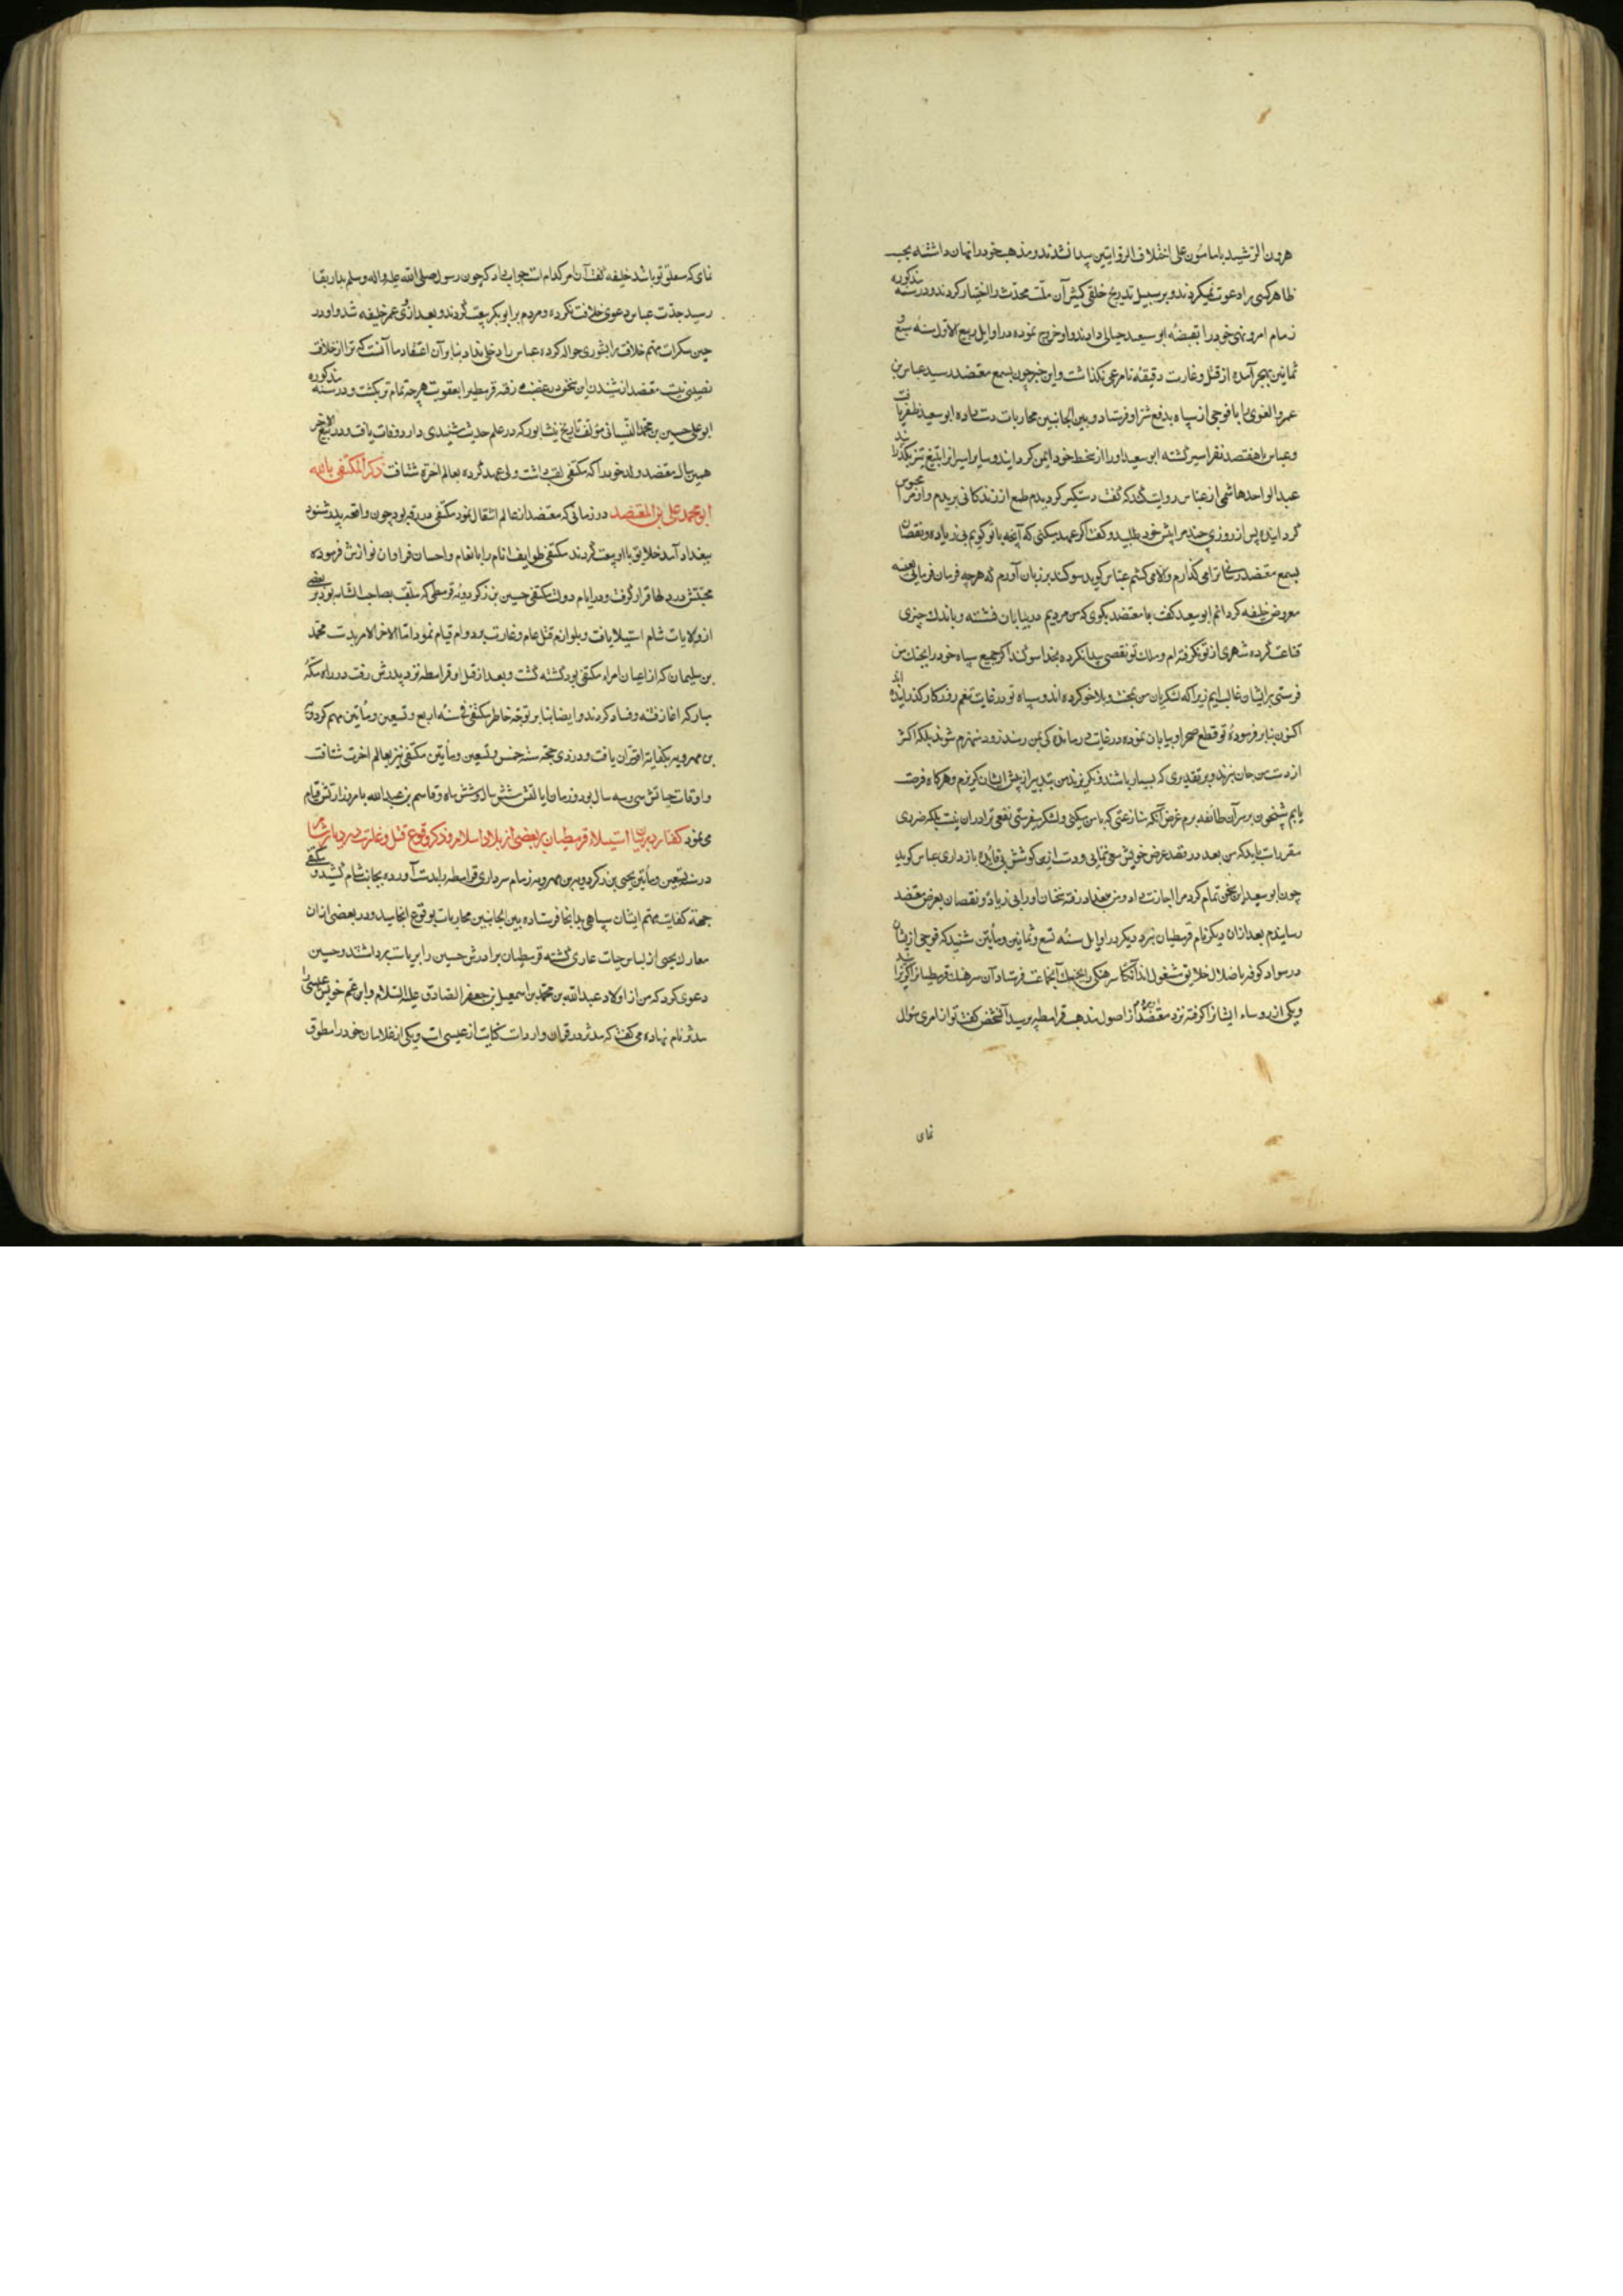 هرون الرشید یا مامون علی اختلاف الروایتین پیدا شدند و مذهب خود را نهان داشته بحسب
ظاهر کسی را دعوت نمیکردند و بر سبیل تدریج خلقی کیش آن ملت محدث را اختیار کردند و در سنه مذکوره
زمام امر و نهی خود را بقبضه ابو سعید جبائی دادند و او خروج نموده در اوایل ربیع الاول سنه سبع و
ثمانین بهجر آمده از قتل و غارت دقیقه نامرعی نگذاشت و این خبر چون بسمع معتضد رسید عباس بن
عمرو الغنوی را با فوجی از سپاه بدفع شر او فرستاد و بین الجانبین محاربات دست داده ابو سعید ظفر یافت
و عباس با هفتصد نفر اسیر گشته ابو سعید او را از سخط خود ایمن گردانید و سایر اسیرانرا بتیغ تیز بگذرانید
عبد الواحد هاشمی از عباس روایت کند که گفت دستگیر گردیدم طمع از زندگانی بریدم و او مرا محبوس
گردانیده پس از روزی چند مرا پیش خود طلبید و گفت اگر عهد میکنی که آنچه با تو گویم بی زیاده و نقصان
بسمع معتضد رسانی ترا می گذارم و الا می کشم عباس گوید سوگند بر زبان آوردم که هر چه فرمان فرمائی بعینه
معروض خلیفه گردانم ابو سعید گفت با معتضد بگوی که من مردیم در بیابان نشسته و باندک چیزی
قناعت کرده شهری از تو نگرفته ام و ملک تو نقصی پیدا نکرده بخدا سوگند اگر جمیع سپاه خود را بجنگ من
فرستی بر ایشان غالب ایم زیرا که لشکریان من بمحنت و بلا خو کرده اند و سپاه تو در غایت تنعم روزگار گذرانیده اند
اکنون بنابر فرموده تو قطع صحرا و بیابان نموده در غایت درماندگی بمن رسند زود منهزم شوند بلکه اکثر
از دست من جان نبرند و بر تقدیری که بسیار باشند و نگریزند من بتدبیر از پیش ایشان گریزم و هرگاه فرصت
یابم شبیخون بر سر آن طائفه برم غرض آنکه منازعتی که با من میکنی و لشکر میفرستی نفعی ترا در آن نیست بلکه ضرری
مقرر است باید که من بعد در قصد عرض خویش سعی ننمایی و دست از این کوشش بی فائده بازداری عباس گوید
چون ابو سعید این سخن تمام کرد مرا اجازت داد و من ببغداد رفته سخنان او را بی زیاده و نقصان بعرض معتضد
رسانیدم بعد از آن دیگر نام قرمطیان نبرد دیگر در اوایل سنه تسع و ثمانین و مأتین شنید که فوجی از ایشان
در سواد کوفه باضلال خلایق مشغول اند آنگاه سرهنگی بجنگ آنجماعت فرستاد و آن سرهنگ قرمطیانرا
و یکی از رؤساء ایشانرا گرفته نزد معتضد برده معتضد از اصول مذهب قرامطه پرسید آنشخص گفت تو از امری سؤال
نمای
نمای که متعلق بتو باشد خلیفه گفت آن امر کدام است جواب داد که چون رسول صلی الله علیه و اله و سلم بدار بقا
رسید جدت عباس دعوی خلافت نکرده و مردم با ابو بکر بیعت کردند و بعد از وی عمر خلیفه شد و او در
حین سکرات مهم خلافت را بشوری حواله کرده عباس را دخلی نداد بنابر آن اعتقاد ما آنست که ترا از خلافت
نصیبی نیست معتضد از شنیدن این سخن در غضب رفته قرمطی را بعقوبت هر چه تمام تر بکشت و در سنه مذکوره
ابو علی حسین بن محمد النسائی مؤلف تاریخ نیشابور که در علم حدیث مسندی دارد وفات یافت و در ربیع الاخر
همین سال معتضد ولد خود را که مکتفی لقب داشت ولی عهد کرده بعالم اخرة شتافت ذکر المکتفی بالله
ابو محمد علی بن المعتضد در زمانی که معتضد از عالم انتقال نمود مکتفی در رقه بود چون واقعه پدر شنود
ببغداد آمد خلایق با او بیعت کردند مکتفی طوایف انام را بانعام و احسان فراوان نوازش فرموده
محبتش در دلها قرار گرفت و در ایام دولت مکتفی حسین بن زکرویه قرمطی که ملقب بصاحب الشامه بود بر بعضی
از ولایات شام استیلا یافت و بلوازم قتل عام و غارت بر دوام قیام نمود اما الاخر الامر بدست محمد
بن سلیمان که از اعیان امراء مکتفی بود گشته گشت و بعد از قتل او قرامطه نزد پدرش رفت در راه مکه
مبارکه اغاز فتنه و فساد کردند و ایضا بنابر توجه خاطر مکتفی در سنه اربع و تسعین و مأتین مهم
بن مهرویه بکفایه اقتران یافت و در ذی حجه سنه خمس و تسعین و مأتین مکتفی نیز بعالم اخرت شتافت
و اوقات حیاتش سی و سه سال بود و زمان ایالتش شش سال و شش ماه و قاسم بن عبید الله بامر وزارتش قیام
می نمود گفتار در بیان استیلاء قرمطیان بر بعضی از بلاد اسلام و ذکر وقوع قتل و غارت در دیار شام
در سنه تسعین و مأتین یحیی بن زکرویه بن مهرویه زمام سرداری قرامطه را بدست آورده بجانب شام کشید و مکتفی
جهة کفایت مهم ایشان سپاهی بدانجا فرستاده بین الجانبین محاربات بوقوع انجامید و در بعضی از ان
معارک یحیی از لباس حیات عاری گشته قرمطیان برادرش حسین را بریاست برداشتند و حسین
دعوی کرد که من از اولاد عبد الله بن محمد بن اسمعیل بن جعفر الصادق علیه السلام و ابن عم خویش عیسی را
مدثر نام نهاده می گفت که مدثر در قران وارد است کنایت از عیسی است و یکی از غلامان خود را مطوق